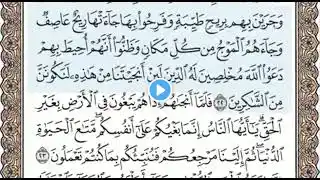 وَجَرَيْنَ بِهِم بِرِيحٍ طَيِّبَةٍ وَفَرِحُوا۟ بِهَا جَآءَتْهَا رِيحٌ عَاصِفٌ
وَجَآءَهُمُ ٱلْمَوْجُ مِن كُلِّ مَكَانٍ وَظَنُّوٓا۟ أَنَّهُمْ أُحِيطَ بِهِمْ
دَعَوُا۟ ٱللَّهَ مُخْلِصِينَ لَهُ ٱلدِّينَ لَئِنْ أَنجَيْتَنَا مِنْ هَٰذِهِۦ لَنَكُونَنَّ
مِنَ ٱلشَّٰكِرِينَ ٢٢ فَلَمَّآ أَنجَىٰهُمْ إِذَا هُمْ يَبْغُونَ فِى ٱلْأَرْضِ بِغَيْرِ
ٱلْحَقِّ يَٰٓأَيُّهَا ٱلنَّاسُ إِنَّمَا بَغْيُكُمْ عَلَىٰٓ أَنفُسِكُم مَّتَٰعَ ٱلْحَيَوٰةِ
ٱلدُّنْيَا ثُمَّ إِلَيْنَا مَرْجِعُكُمْ فَنُنَبِّئُكُم بِمَا كُنتُمْ تَعْمَلُونَ ٢٣